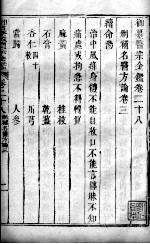 御纂醫宗金鑑卷二十八
刪補名醫方論卷三
續命湯
治中風痱身體不能自收口不能言冒昧不知
痛處或拘急不得轉側
麻黃　桂枝
石膏　乾薑
杏仁四十　川芎
當歸　人參